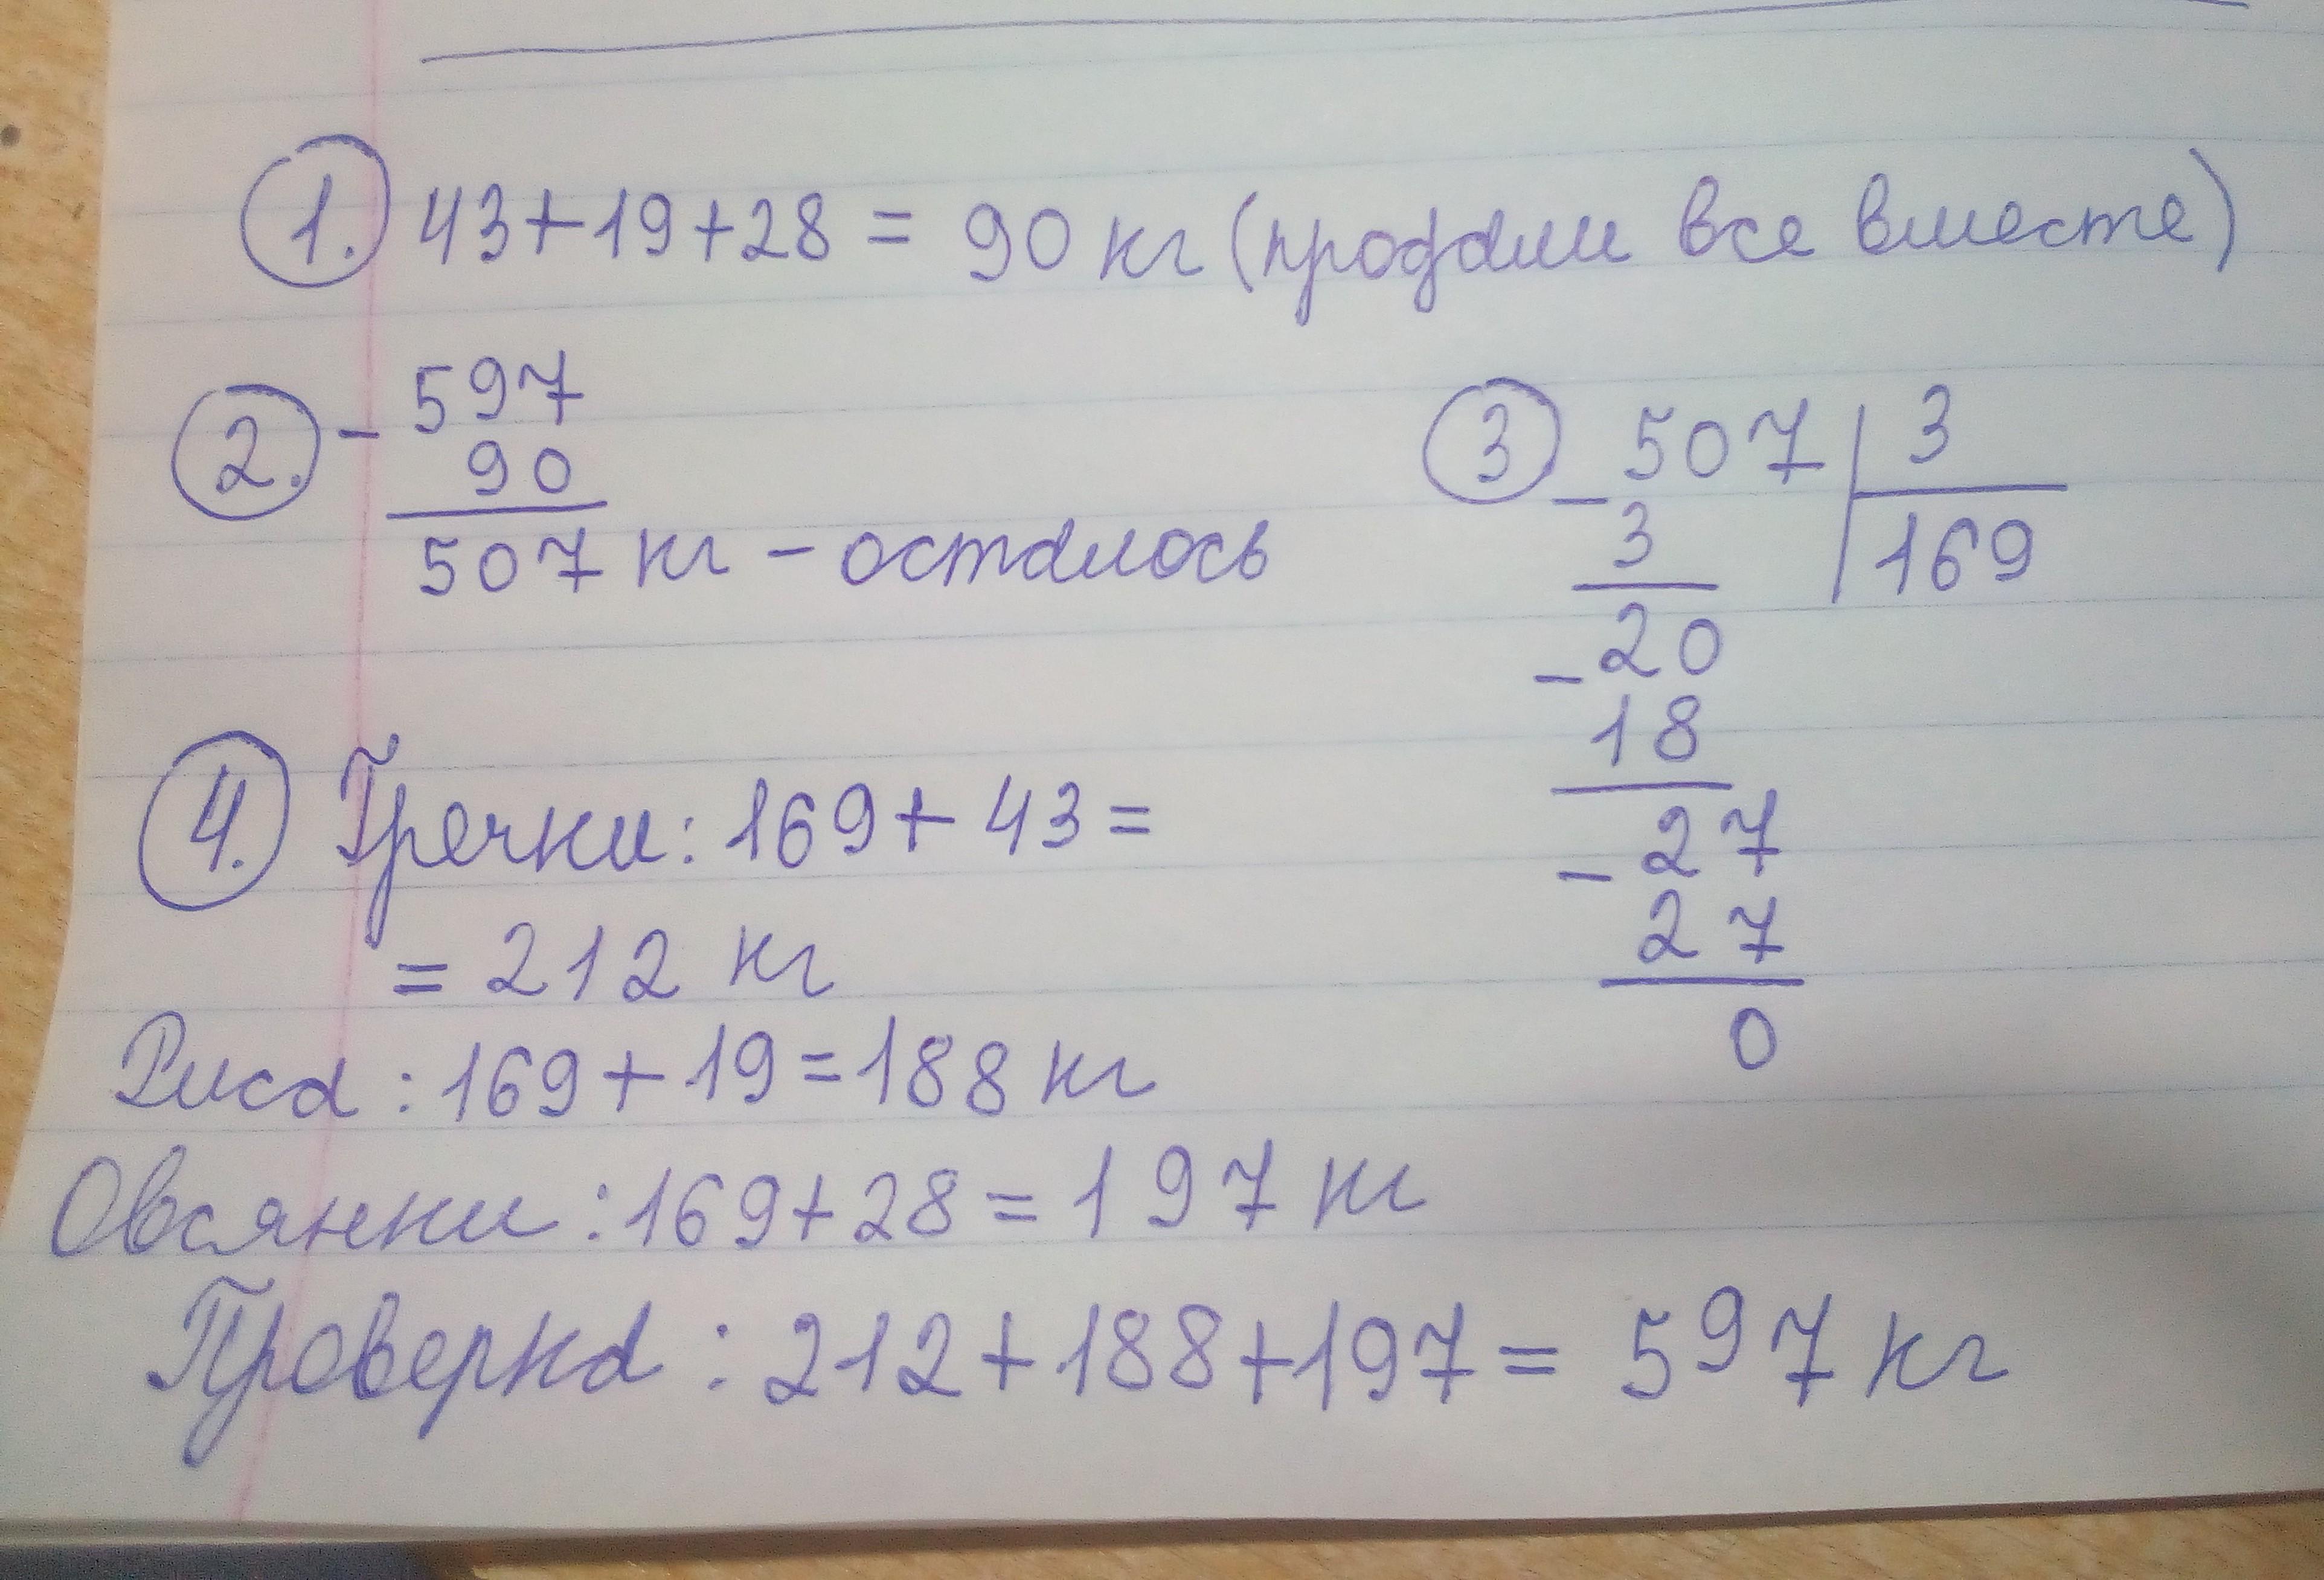 1. 43+19+28 = 90 кг (продали все вместе)
2. - 597
90
507 кг - осталось
3 - 507 | 3
3 | 169
20
- 18
27
- 27
0
4. Гречки: 169 + 43 =
= 212 кг
Риса : 169 + 19 = 188 кг
Овсянки : 169 + 28 = 197 кг
Проверка : 212 + 188 + 197 = 597 кг